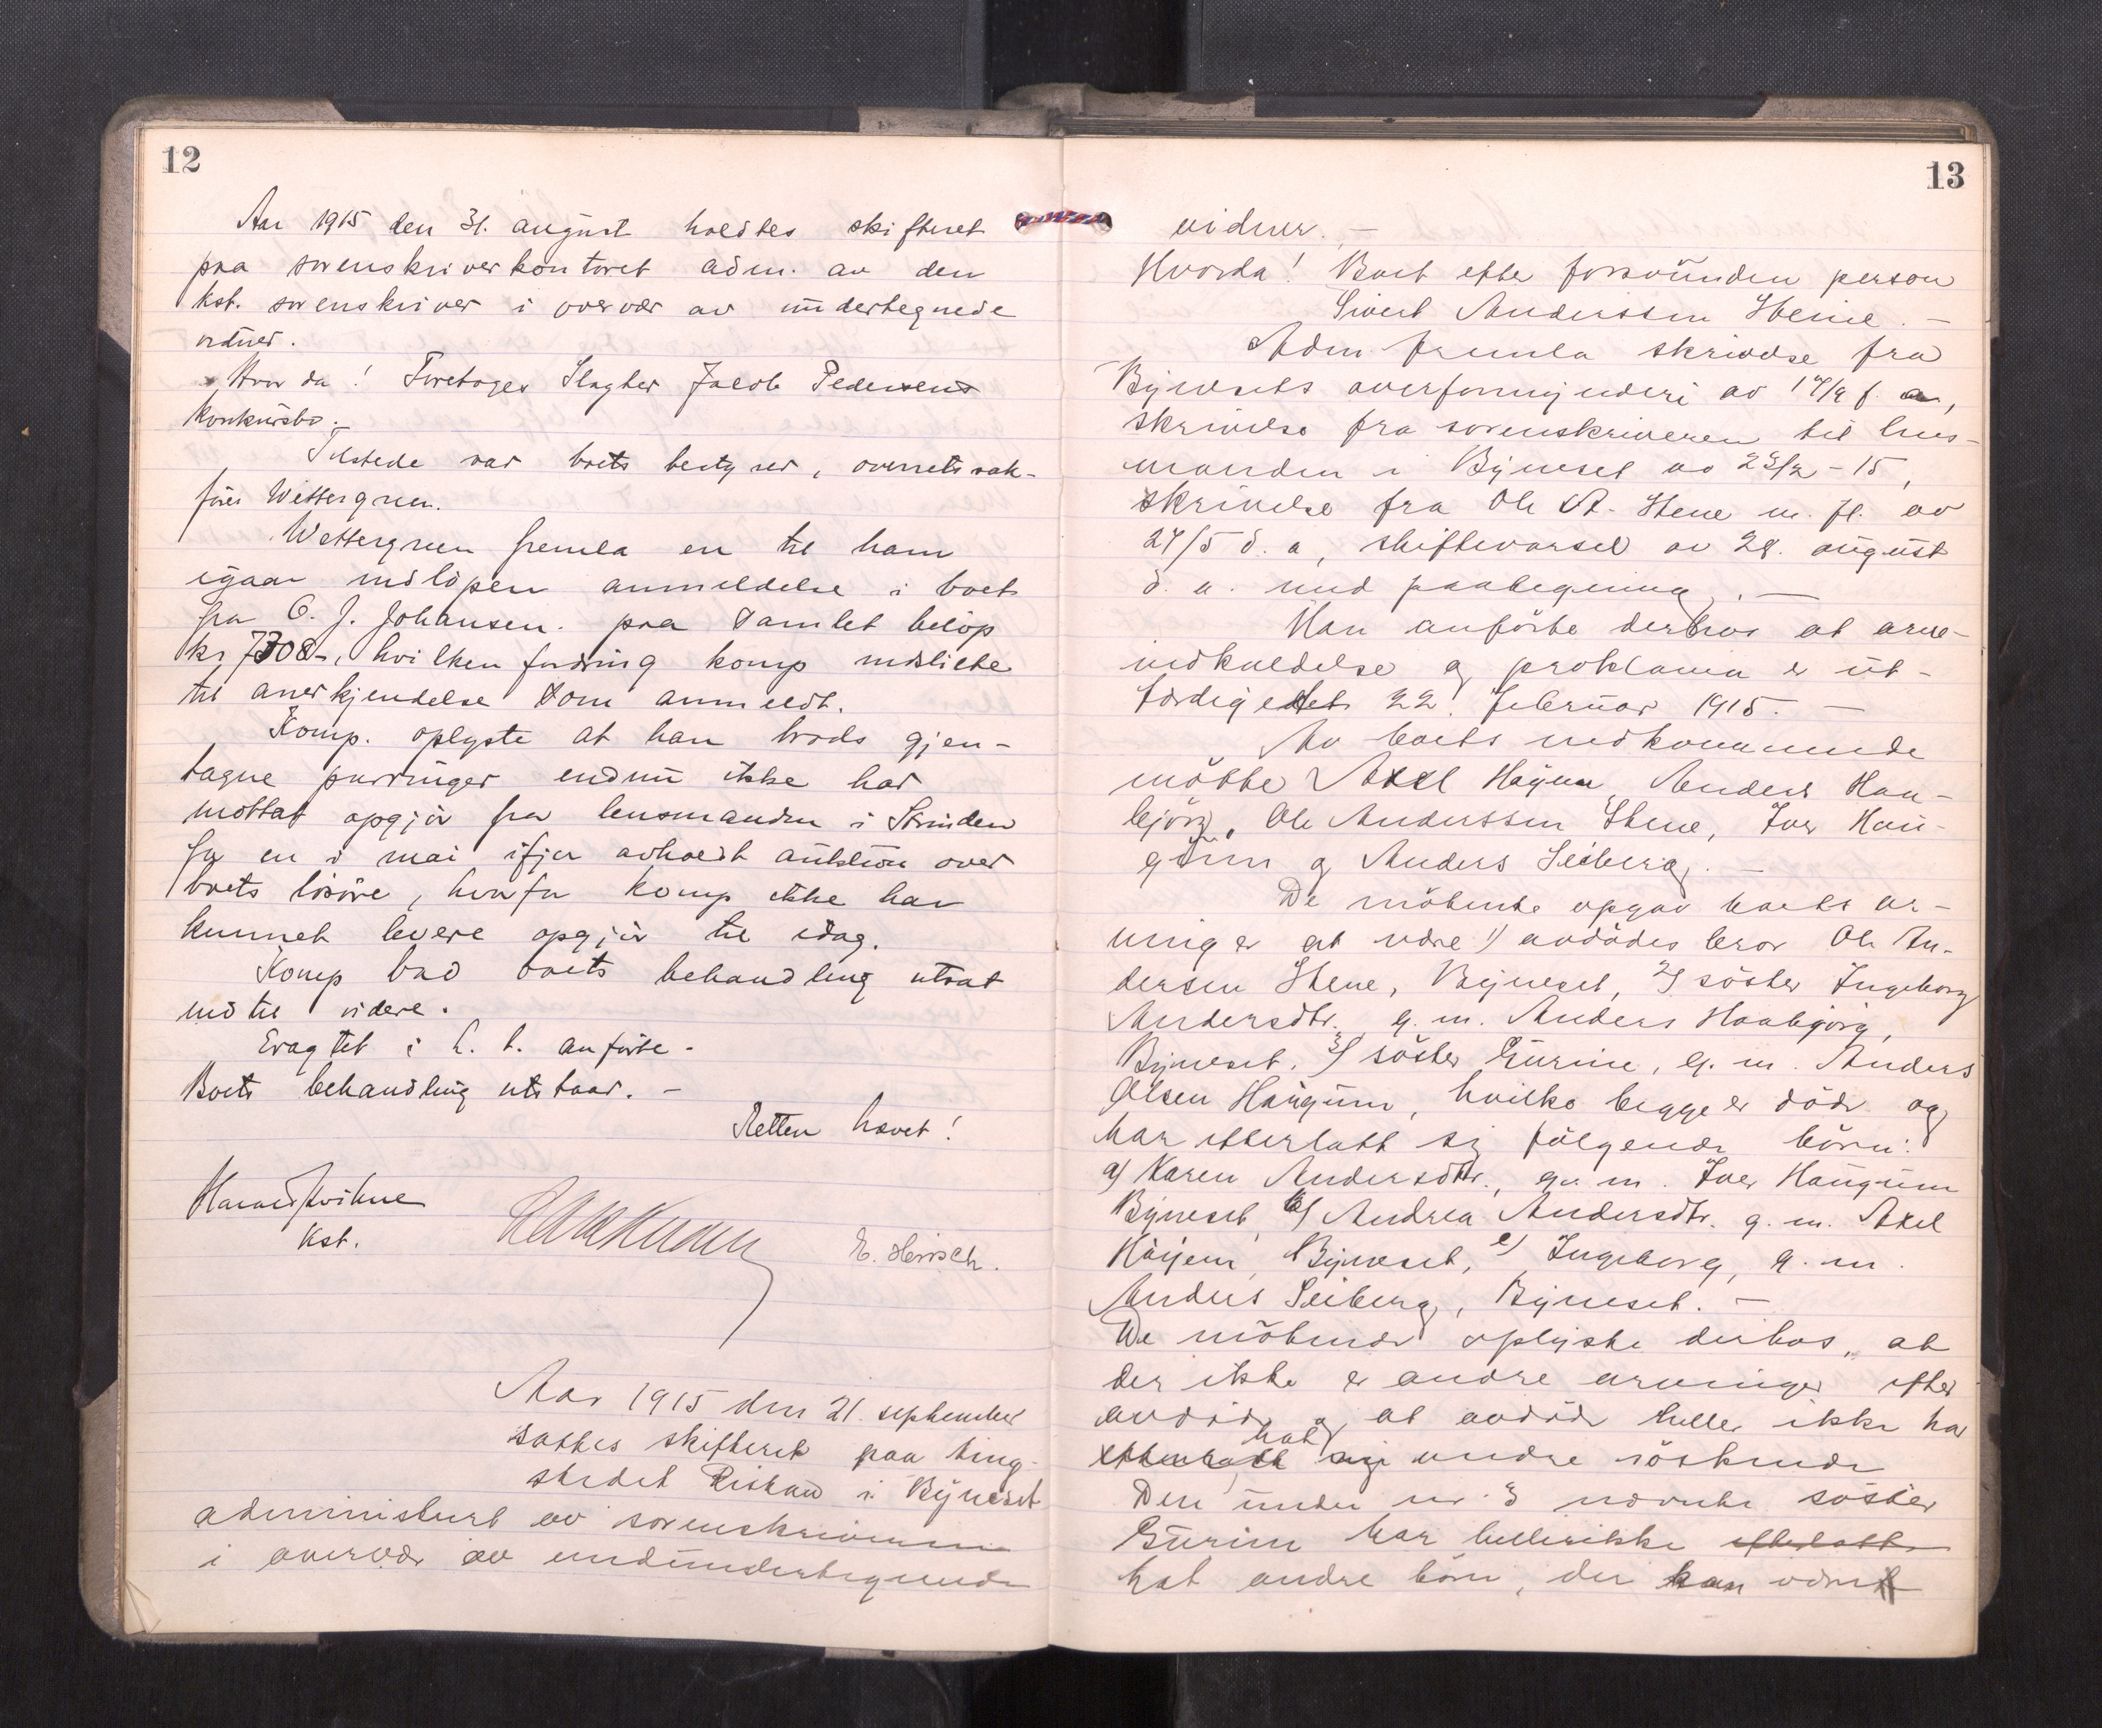 12
Aar 1915 den 31. august holdtes skifteret
paa sorenskriverkontoret adm. av den
kst. sorenskriver i overvær av undertegnede
vidner.
Hvorda! Foretoges Slagter Jacob Pedersens
konkursbo.-
Tilstede var boets bestyrer, overretssak-
fører Wettergreen.
Wettergreen fremla en til ham
igaar indløpen anmeldelse i boet
fra O. J. Johansen paa samlet beløp
kr 7308-, hvilken fordring komp indstillet
til anerkjendelse som anmeldt.
Komp. oplyste at han trods gjen-
tagne purringer endnu ikke har
mottat opgjør fra lensmanden i Strinden
for en i mai ifjor avholdt auktion over
boets løsøre, hvorfor komp ikke har
kunnet levere opgjør til idag.
Komp bad boets behandling utsat
indtil videre.
Eragtet i h. t. anførte -
Boets behandling utstaar. -
Retten hævet!
kst.
E. Hirisch.
Aar 1915 den 21. september
sattes skifteret paa ting-
stedet Ristan i Bynesset
administrert av sorenskriveren
i overvær av undundertegnede
13
vidner. -
Hvorda! Boet efter forsvunden person
Sivert Anderssen Stene. -
Adm fremla skrivelse fra
Bynesets overformynderi av 17/9 f. a.,
skrivelse fra sorenskriveren til lens-
manden i Byneset av 23/2 - 15,
skrivelse fra Ole A. Stene m. fl. av
27/5 d. a, skiftevarsel av 28. august
d. a. med paategning. -
Han anførte derhos at arve-
indkaldelse og proklama er ut-
færdiget 22. februar 1915. -
Av boets vedkommende
møtte Axel Høyem, Anders Haa-
bjørg, Ole Anderssen Stene, Iver Hau-
gum og Anders Seiberg. -
De møtende opgav boets ar-
vinger at være 1) avdødes bror Ole An-
dersen Stene, Byneset, 2) søster Ingeborg
Andersdtr. g. m. Anders Haabjørg,
Byneset. 3) søster Gurine, g. m. Anders
Olsen Haugum, hvilke begge er døde og
har efterlatt sig følgende børn:
a) Karen Andersdtr., g. m. Iver Haugum
Byneset, b) Andrea Andersdtr. g. m. Axel
Høyem, Byneset, c) Ingeborg, g. m.
Anders Seiberg, Byneset. -
De møtende oplyste derhos, at
der ikke er andre arvinger efter
avdøde og at avdøde heller ikke har
hat
efterlatt sig andre søskende
Den under nr. 3 nævnte søster
Gurine har hellerikke efterlatt
hat andre børn, der kan være